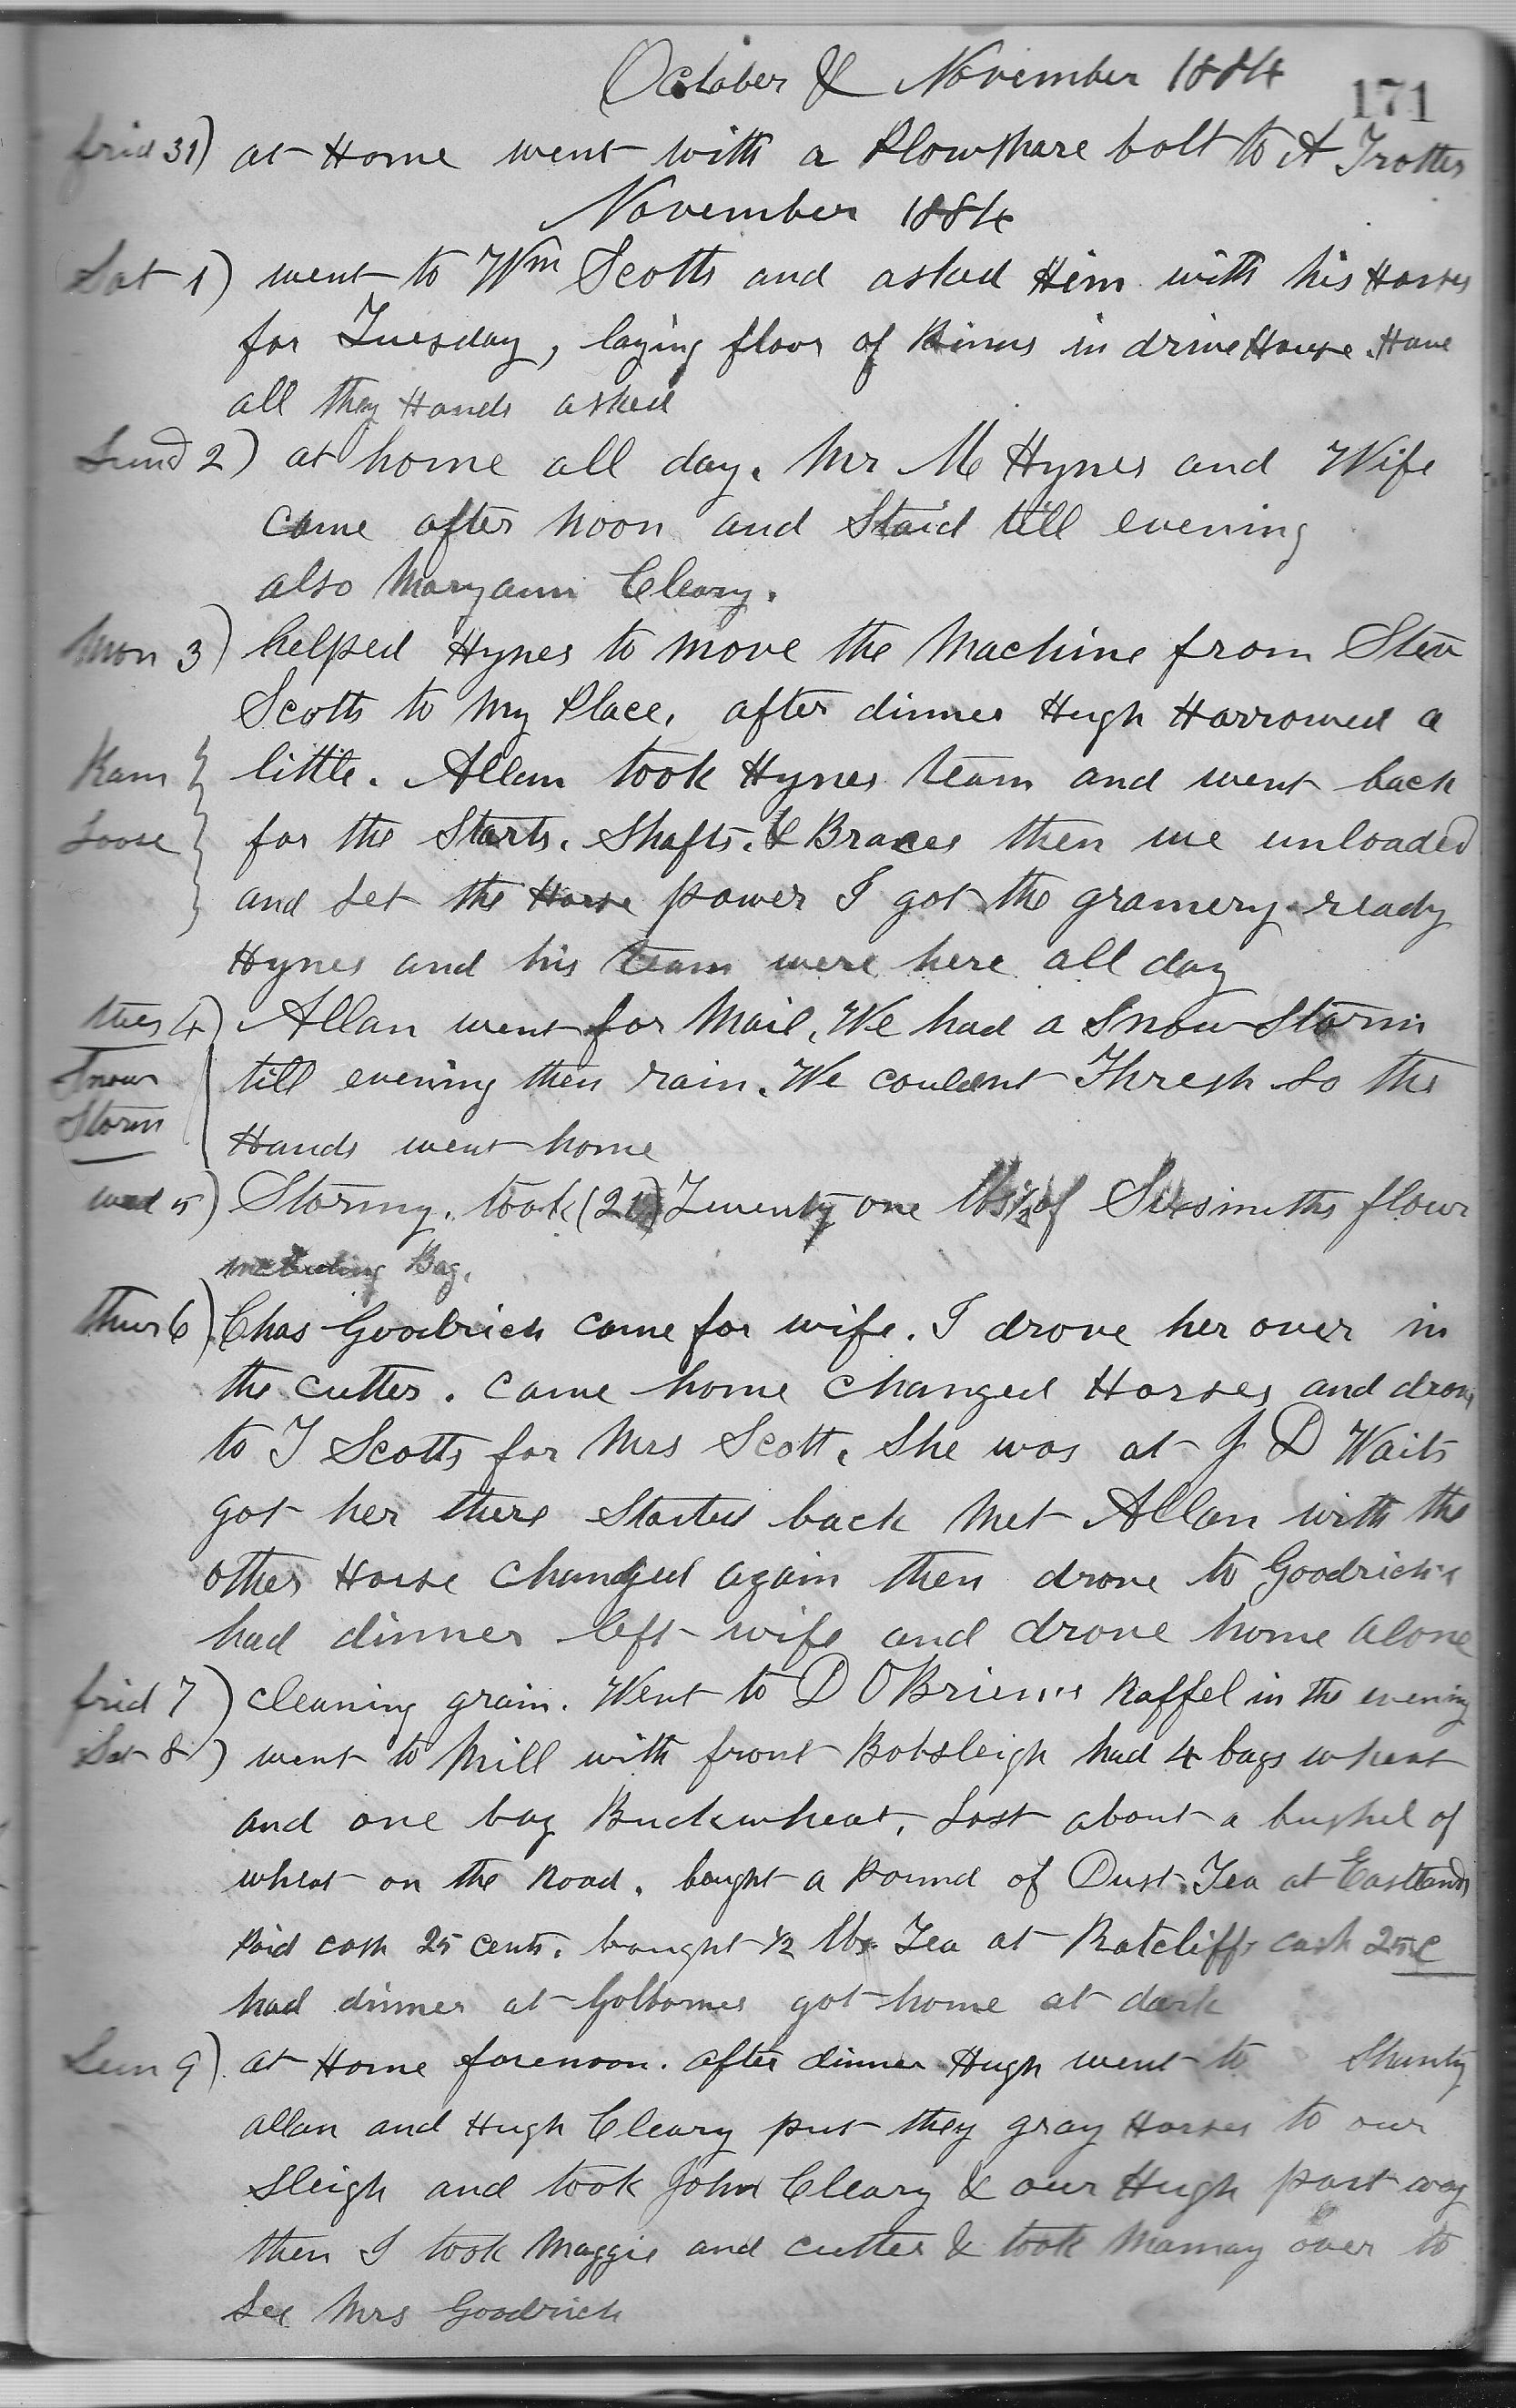 October & November 1884
171
frid 31) at Home went with a Plowshare bolt to A Trotter
November 1884
Sat 1) went to Wm Scotts and asked Him with his Horses
for Tuesday, laying floor of Binns in drive House. Have
all they Hands asked
Sund 2) at home all day. Mr M Hynes and Wife
came after noon and Staid till evening
also Maryann Cleary.
Mon 3) helped Hynes to move the Machine from
Scotts to My Place. after dinner Hugh Harrowed a
Ram } little. Allan took Hynes team and went back
Loose } for the Starts. Shafts. & Braces then we unloaded
and set the Horse power I got the granery ready
Hynes and his team were here all day
tues 4) Allan went for Mail. We had a Snow Storm
Snow till evening then rain. We couldnt Thresh so the
Storm Hands went home
wed 5) Stormy. took (21) Twenty one lbs ½ of Sixsmiths flour
including Bag.
Thur 6) Chas Goodrich came for wife. I drove her over in
the cutter. came home changed Horses and drove
to T Scotts for Mrs Scott. She was at J D Waits
got her there Started back Met Allan with the
other Horse changed again then drove to Goodrich's
had dinner left wife and drove home alone
frid 7) cleaning grain. Went to D OBriens Raffel in the evening
Sat 8) went to Mill with front Bobsleigh had 4 bags wheat
and one bag Buckwheat. Lost about a bushel of
wheat on the Road. bought a Pound of Dust Tea at Eastlands
Paid cash 25 cents. bought ½ lb Tea at Ratcliffs cash 25c
had dinner at Golbornes got home at dark
Sun 9) at Home forenoon. after dinner Hugh went to Shunty
allan and Hugh Cleary put they gray Horses to our
Sleigh and took John Cleary & our Hugh part way
then I took Maggie and cutter & took Mamay over to
See Mrs Goodrich